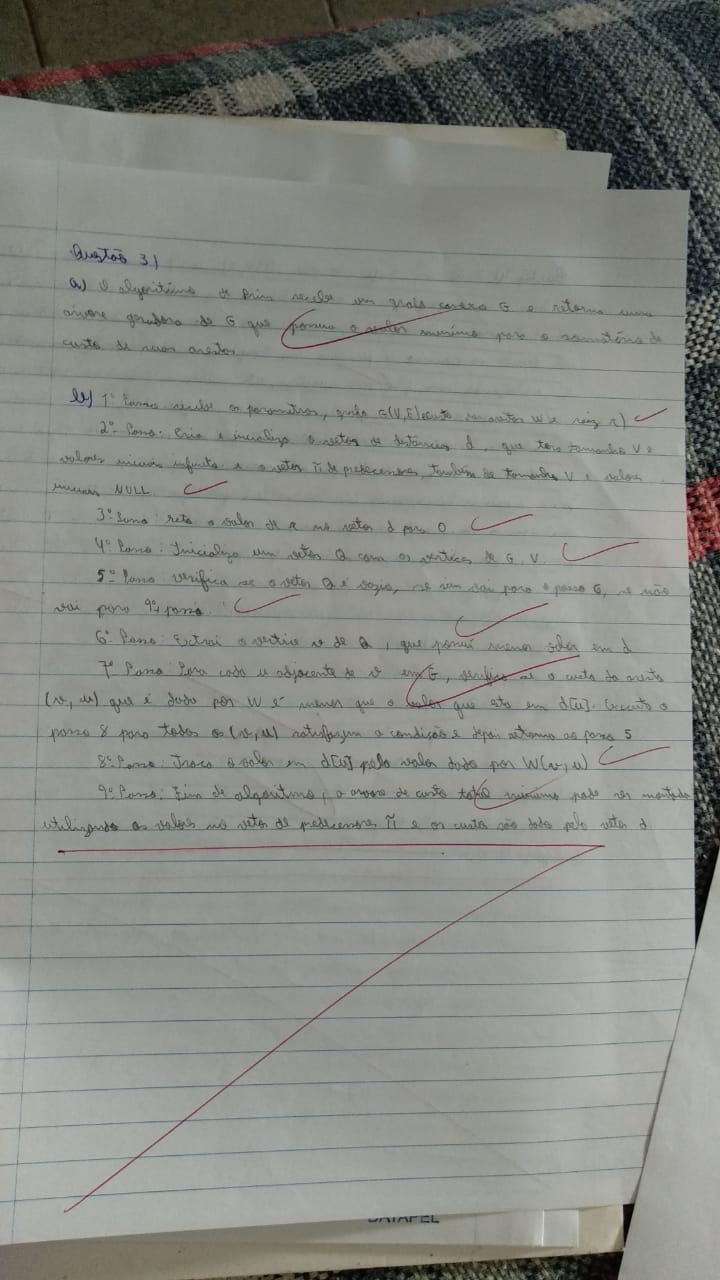 Questão 3)
a) O algoritimo de Prim recebe um grafo conexo G e retorna uma
arvore geradora de G que possua o valor minimo para o somatório do
custo de suas arestas.
b) 1º Passo: recebe os parametros, grafo G(V,E), custo das arestas W e raiz r)
2º Passo: Cria e inicializa o vetor de distâncias d, que tera tamanho V e
valores iniciais infinito e o vetor π de predecessores, também de tamanho V e valores
iniciais NULL.
3º Passo: seta o valor de r no vetor d para 0
4º Passo: Inicializa um vetor Q com os vertices de G.V.
5º Passo: verifica se o vetor Q é vazio, se sim vai para o passo 6, se não
vai para 9º passo.
6º Passo: Extrai o vertice v de Q, que possui menor valor em d
7º Passo: Para cada u adjacente de v em G, verifica se o custo da aresta
(v, u) que é dado por W é menor que o valor que esta em d[u]. Executa o
passo 8 para todos os (v, u) satisfazem a condição e depois retorna ao passo 5
8º Passo: Troca o valor em d[u] pelo valor dado por W(v, u)
9º Passo: Fim do algoritmo, a arvore de custo total minimo pode ser montada
utilizando os valores no vetor de predecessores π e os custos são dado pelo vetor d
DATAPEL